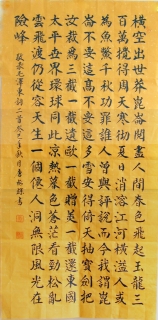 橫空出世莽崑崙閱盡人間春色飛起玉龍三
百萬攪得周天寒徹夏日消溶江河橫溢人或
為魚鱉千秋功罪誰人曾與評說而今我謂崑
崙不要這高不要這多雪安得倚天抽寶劍把
汝裁為三截一截遺歐一截贈美一截還東國
太平世界環球同此涼熱暮色蒼茫看勁松亂
雲飛渡仍從容天生一個僊人洞無限風光在
險峰 毛澤東詞二首癸巳年秋月